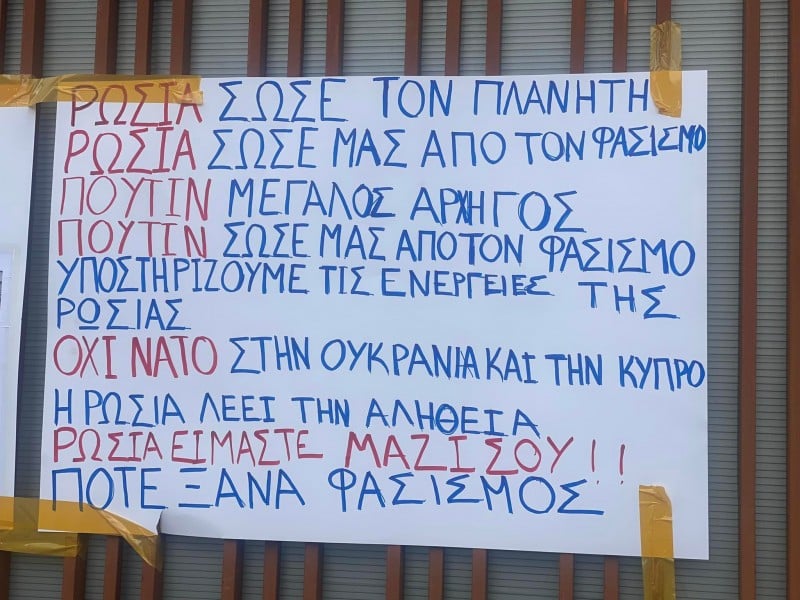 ΡΩΣΙΑ ΣΩΣΕ ΤΟΝ ΠΛΑΝΗΤΗ
ΡΩΣΙΑ ΣΩΣΕ ΜΑΣ ΑΠΟ ΤΟΝ ΦΑΣΙΣΜΟ
ΠΟΥΤΙΝ ΜΕΓΑΛΟΣ ΑΡΧΗΓΟΣ
ΠΟΥΤΙΝ ΣΩΣΕ ΜΑΣ ΑΠΟ ΤΟΝ ΦΑΣΙΣΜΟ
ΥΠΟΣΤΗΡΙΖΟΥΜΕ ΤΙΣ ΕΝΕΡΓΕΙΕΣ ΤΗΣ
ΡΩΣΙΑΣ
ΟΧΙ ΝΑΤΟ ΣΤΗΝ ΟΥΚΡΑΝΙΑ ΚΑΙ ΤΗΝ ΚΥΠΡΟ
Η ΡΩΣΙΑ ΛΕΕΙ ΤΗΝ ΑΛΗΘΕΙΑ
ΡΩΣΙΑ ΕΙΜΑΣΤΕ ΜΑΖΙ ΣΟΥ!!
ΠΟΤΕ ΞΑΝΑ ΦΑΣΙΣΜΟΣ